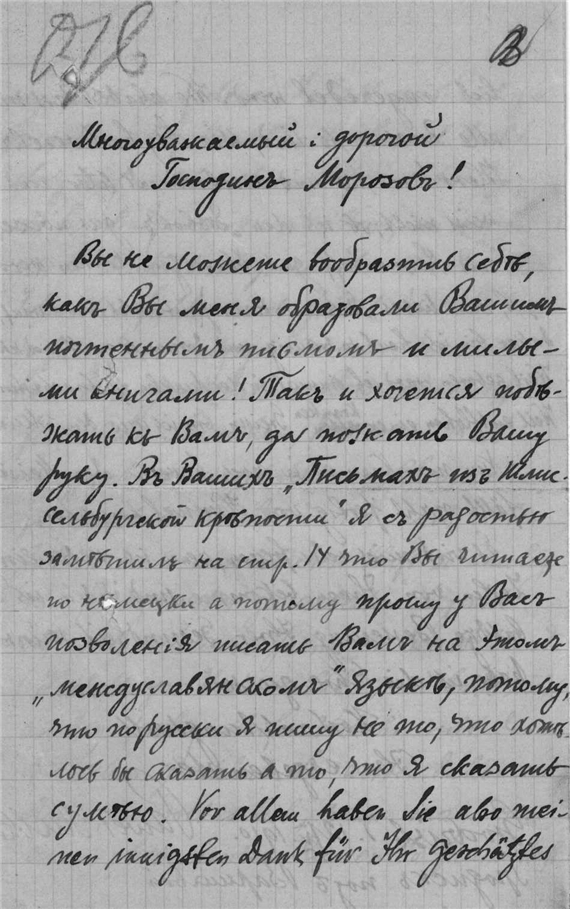 В
Многоуважаемый i дорогой
Господинъ Морозовъ!
Вы не можете вообразить себѣ,
какъ Вы меня обрадовали Вашимъ
почтеннымъ писмомъ и милы-
ми книгами! Такъ и хочется побѣ-
жать къ Вамъ, да пожать Вашу
руку. Въ Вашихъ „Письмахъ изъ Шлис-
сельбургской крѣпости" я съ радостью
замѣтилъ на стр. 14 что Вы читаете
по нѣмецки а потому прошу у Васъ
позволенiя писать Вамъ на этомъ
„междуславянскомъ" языкѣ, потому,
что порусски я пишу не то, что хотѣ-
лось бы сказать а то, что я сказать
сумѣю. Vor allem haben Sie also mei-
nen innigsten Dank für Ihr geschätztes